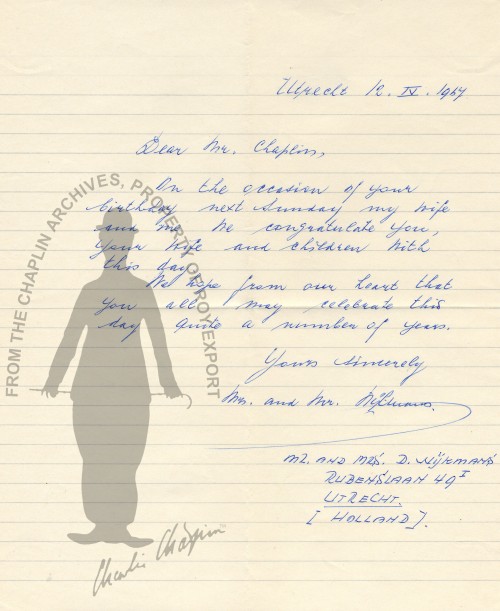 Utrecht 12. IV. 1967
Dear Mr. Chaplin,
On the occasion of your
birthday next Sunday my wife
and me we congratulate you,
your wife and children with
this day.
We hope from our heart that
you all may celebrate this
day quite a number of years.
Yours Sincerely
Mrs. and Mr. Nijkmans.
MR. AND MRS. D. NIJKMANS
RUBENSLAAN 49 I
UTRECHT.
[HOLLAND].
FROM THE CHAPLIN ARCHIVES, PROPERTY OF ROY EXPORT
Charlie Chaplin